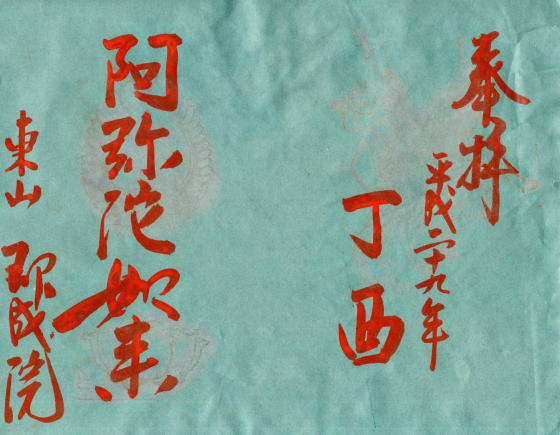 奉拝
平成二十九年
丁酉
阿弥陀如来
東山
即成院